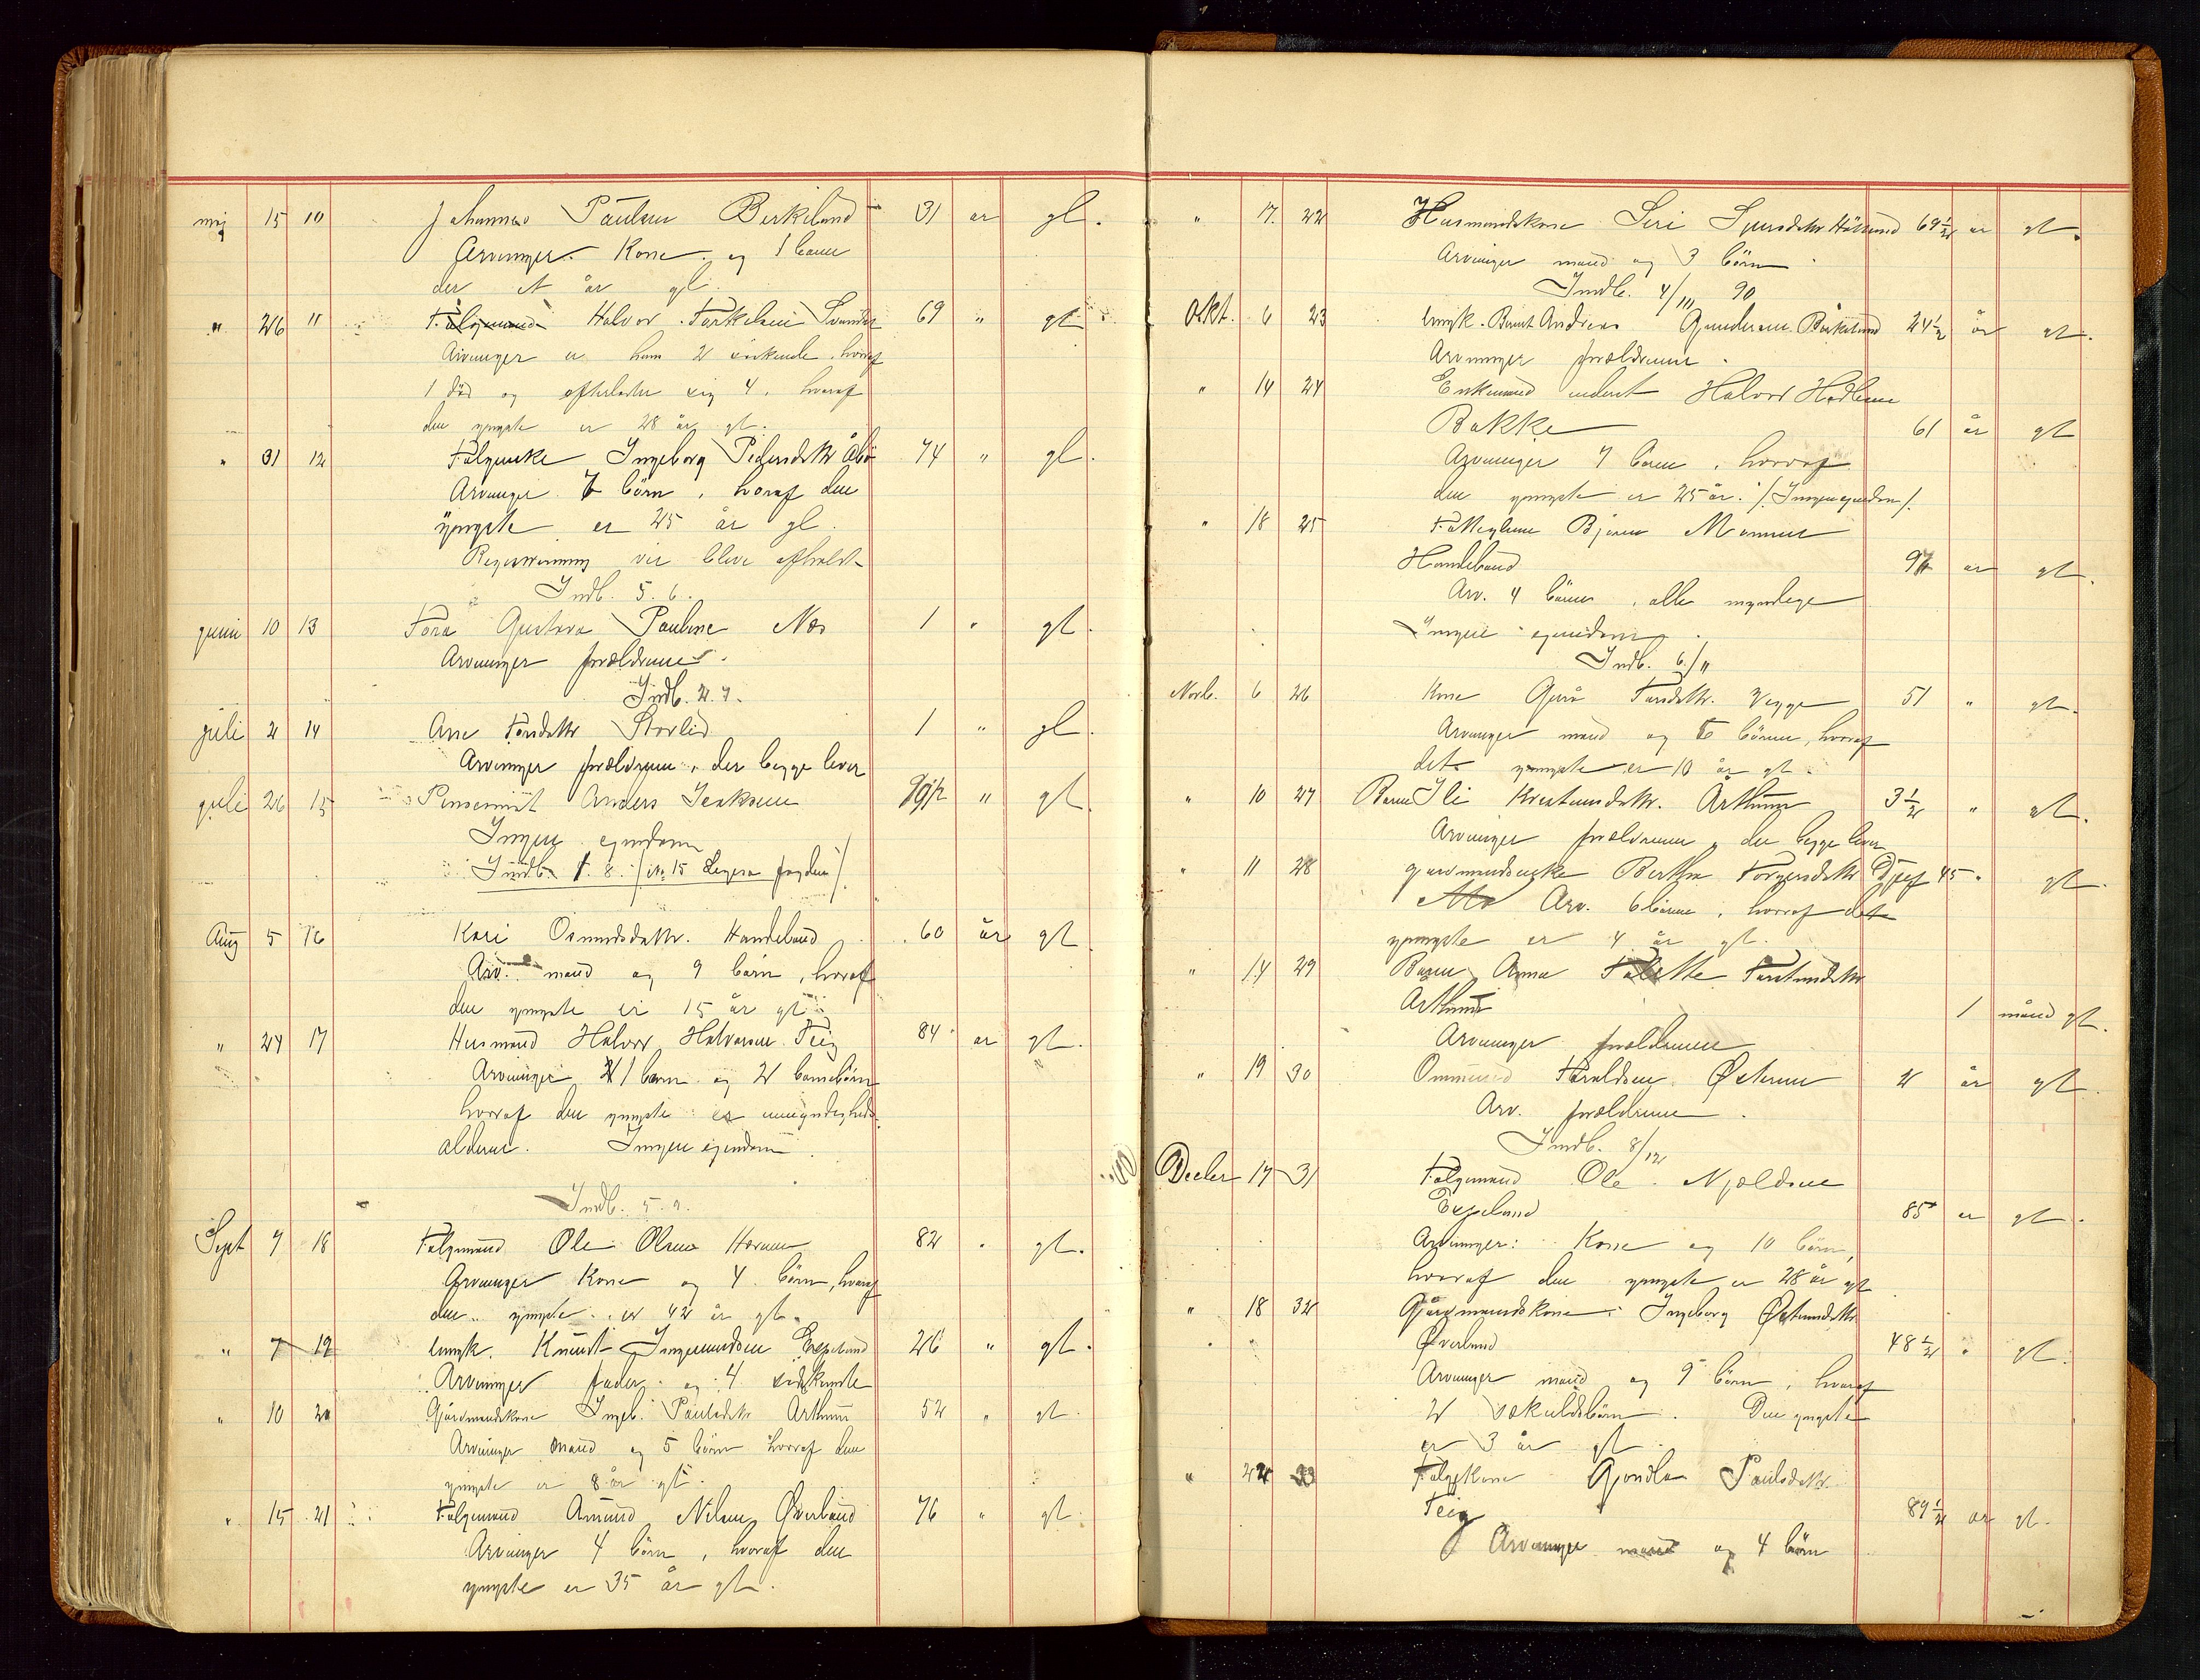 maj 15 10 Johannes Paulsen Birkeland 31 år gl.
Arvinger. Kone og 1 barn
der et år gl.
" 26 11 Følgemand Halvor Torkelsen 69 " gl
Arvinger er ham 2 søskende, hvoraf
1 død og efterlader sig 4, hvoraf
den yngste er 28 år gl.
" 31 12 Følgenke Ingeborg Pedersdtr Åbø 74 " gl.
Arvinger 7 børn, hvoraf den
yngste er 25 år gl.
Registrering vil blive afholdt
Indb. 5. 6.
juni 10 13 Tora Gustava Pauline Næs 1 " gl.
Arvinger forældrene.
Indb. 2. 7.
juli 2 14 Ane Storlid 1 " gl.
Arvinger forældrene, der begge lever
juli 26 15 Anders Isaksen " gl.
Ingen ejendom
Indb. 1. 8.
Aug 5 16 Kari Osmundsdatr. Handeland 60 år gl.
Arv. mand og 9 børn, hvoraf
den yngste er 15 år gl
" 24 17 Husmand Halvor Halvorsen Teig 84 år gl.
Arvinger 1 barn og 2 barnebørn
hvoraf den yngste er umyndigheds
alderen. Ingen ejendom.
Indb. 5. 9.
Sept 7 18 Følgmand Ole Olsen 82 " gl.
Arvinger Kone og 4 børn, hvoraf
den yngste er 42 år gl.
" 7 19 Ungk. Knudt Ingemundsen Espeland 26 " gl.
Arvinger fader og 4 søskende
" 10 20 Gårdmandskone Ingeb. Paulsdtr Arthun 52 " gl.
Arvinger mand og 5 børn hvoraf den
yngste er 8 år gl.
" 15 21 Følgemand Amund Nilsen Øverland 76 " gl.
Arvinger 4 børn, hvoraf den
yngste er 35 år gl.
" 17. 22 Husmandskone Siri Sjursdtr 69½ år gl.
Arvinger mand og 3 børn.
Indb. 4/10 90
Okt. 6 23 Ungk. Bernt Andreas Gundersen Birkeland 24½ år gl.
Arvinger forældrene.
" 14 24 Enkemand Halvor
Bakke 61 år gl
Arvinger 7 børn, hvoraf
den yngste er 25 år. /. Ingen ejendom /.
" 18 25 Bjørn
Handeland år gl.
Arv. 4 børn, alle myndige
Ingen ejendom.
Indb. 6/11
Novb. 6 26 Kone Guro Vegge 51 " gl.
Arvinger mand og 6 børn, hvoraf
det yngste er 10 år gl.
" 10 27 Barn Ili Arthun 3½ " gl.
Arvinger forældrene, der begge lever
" 11 28 gårdmandsenke Bertha Torgersdtr 45 " gl.
Arv. 6 børn, hvoraf det
yngste er 4 år gl.
" 14 29 Barn Anna
Arthun 1 måned gl.
Arvinger forældrene
" 19 30 Ommund Øvernes 2 år gl.
Arv. forældrene.
Indb. 8/12
Decbr 17 31 Følgemand Ole Njældsen
Espeland 85 år gl.
Arvinger: Kone og 10 børn,
hvoraf den yngste er 28 år gl
" 18 32 Gårdmandskone Ingeborg Østensdtr
Øverland 48½ " gl.
Arvinger mand og 9 børn, hvoraf
2 søkuldsbørn. Den yngste
er 3 år gl.
" 22 33 Følgekone Gjondla Paulsdtr.
Teig 89½ år gl.
Arvinger mand og 4 børn